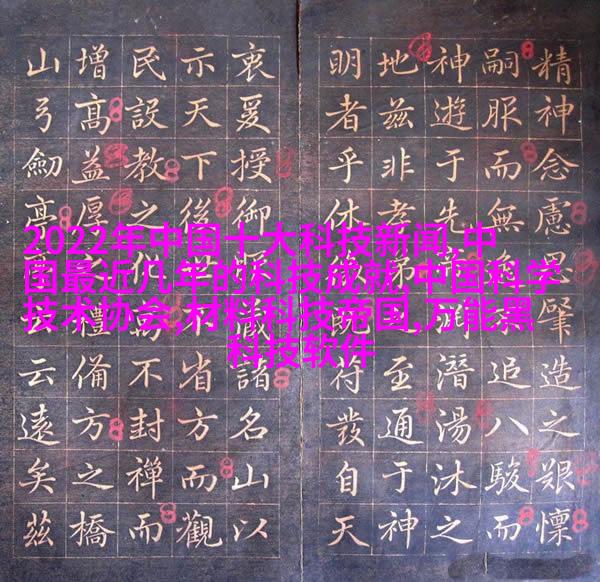 2022年中国十大科技新闻,中
国最近几年的科技成就,中国科学
技术协会,材料科技帝国,万能黑
科技软件
精神念慮思肇造之艱懍
嗣服而無追八駿而
神遊于先潛湯沐之
地茲非孝至通于神
明者乎休符發自天
衷爰授御諸名山以
示天下後省方而觀
民設教之不封禪而
增高益厚禮備方之橋
山弓劍云遠矣茲